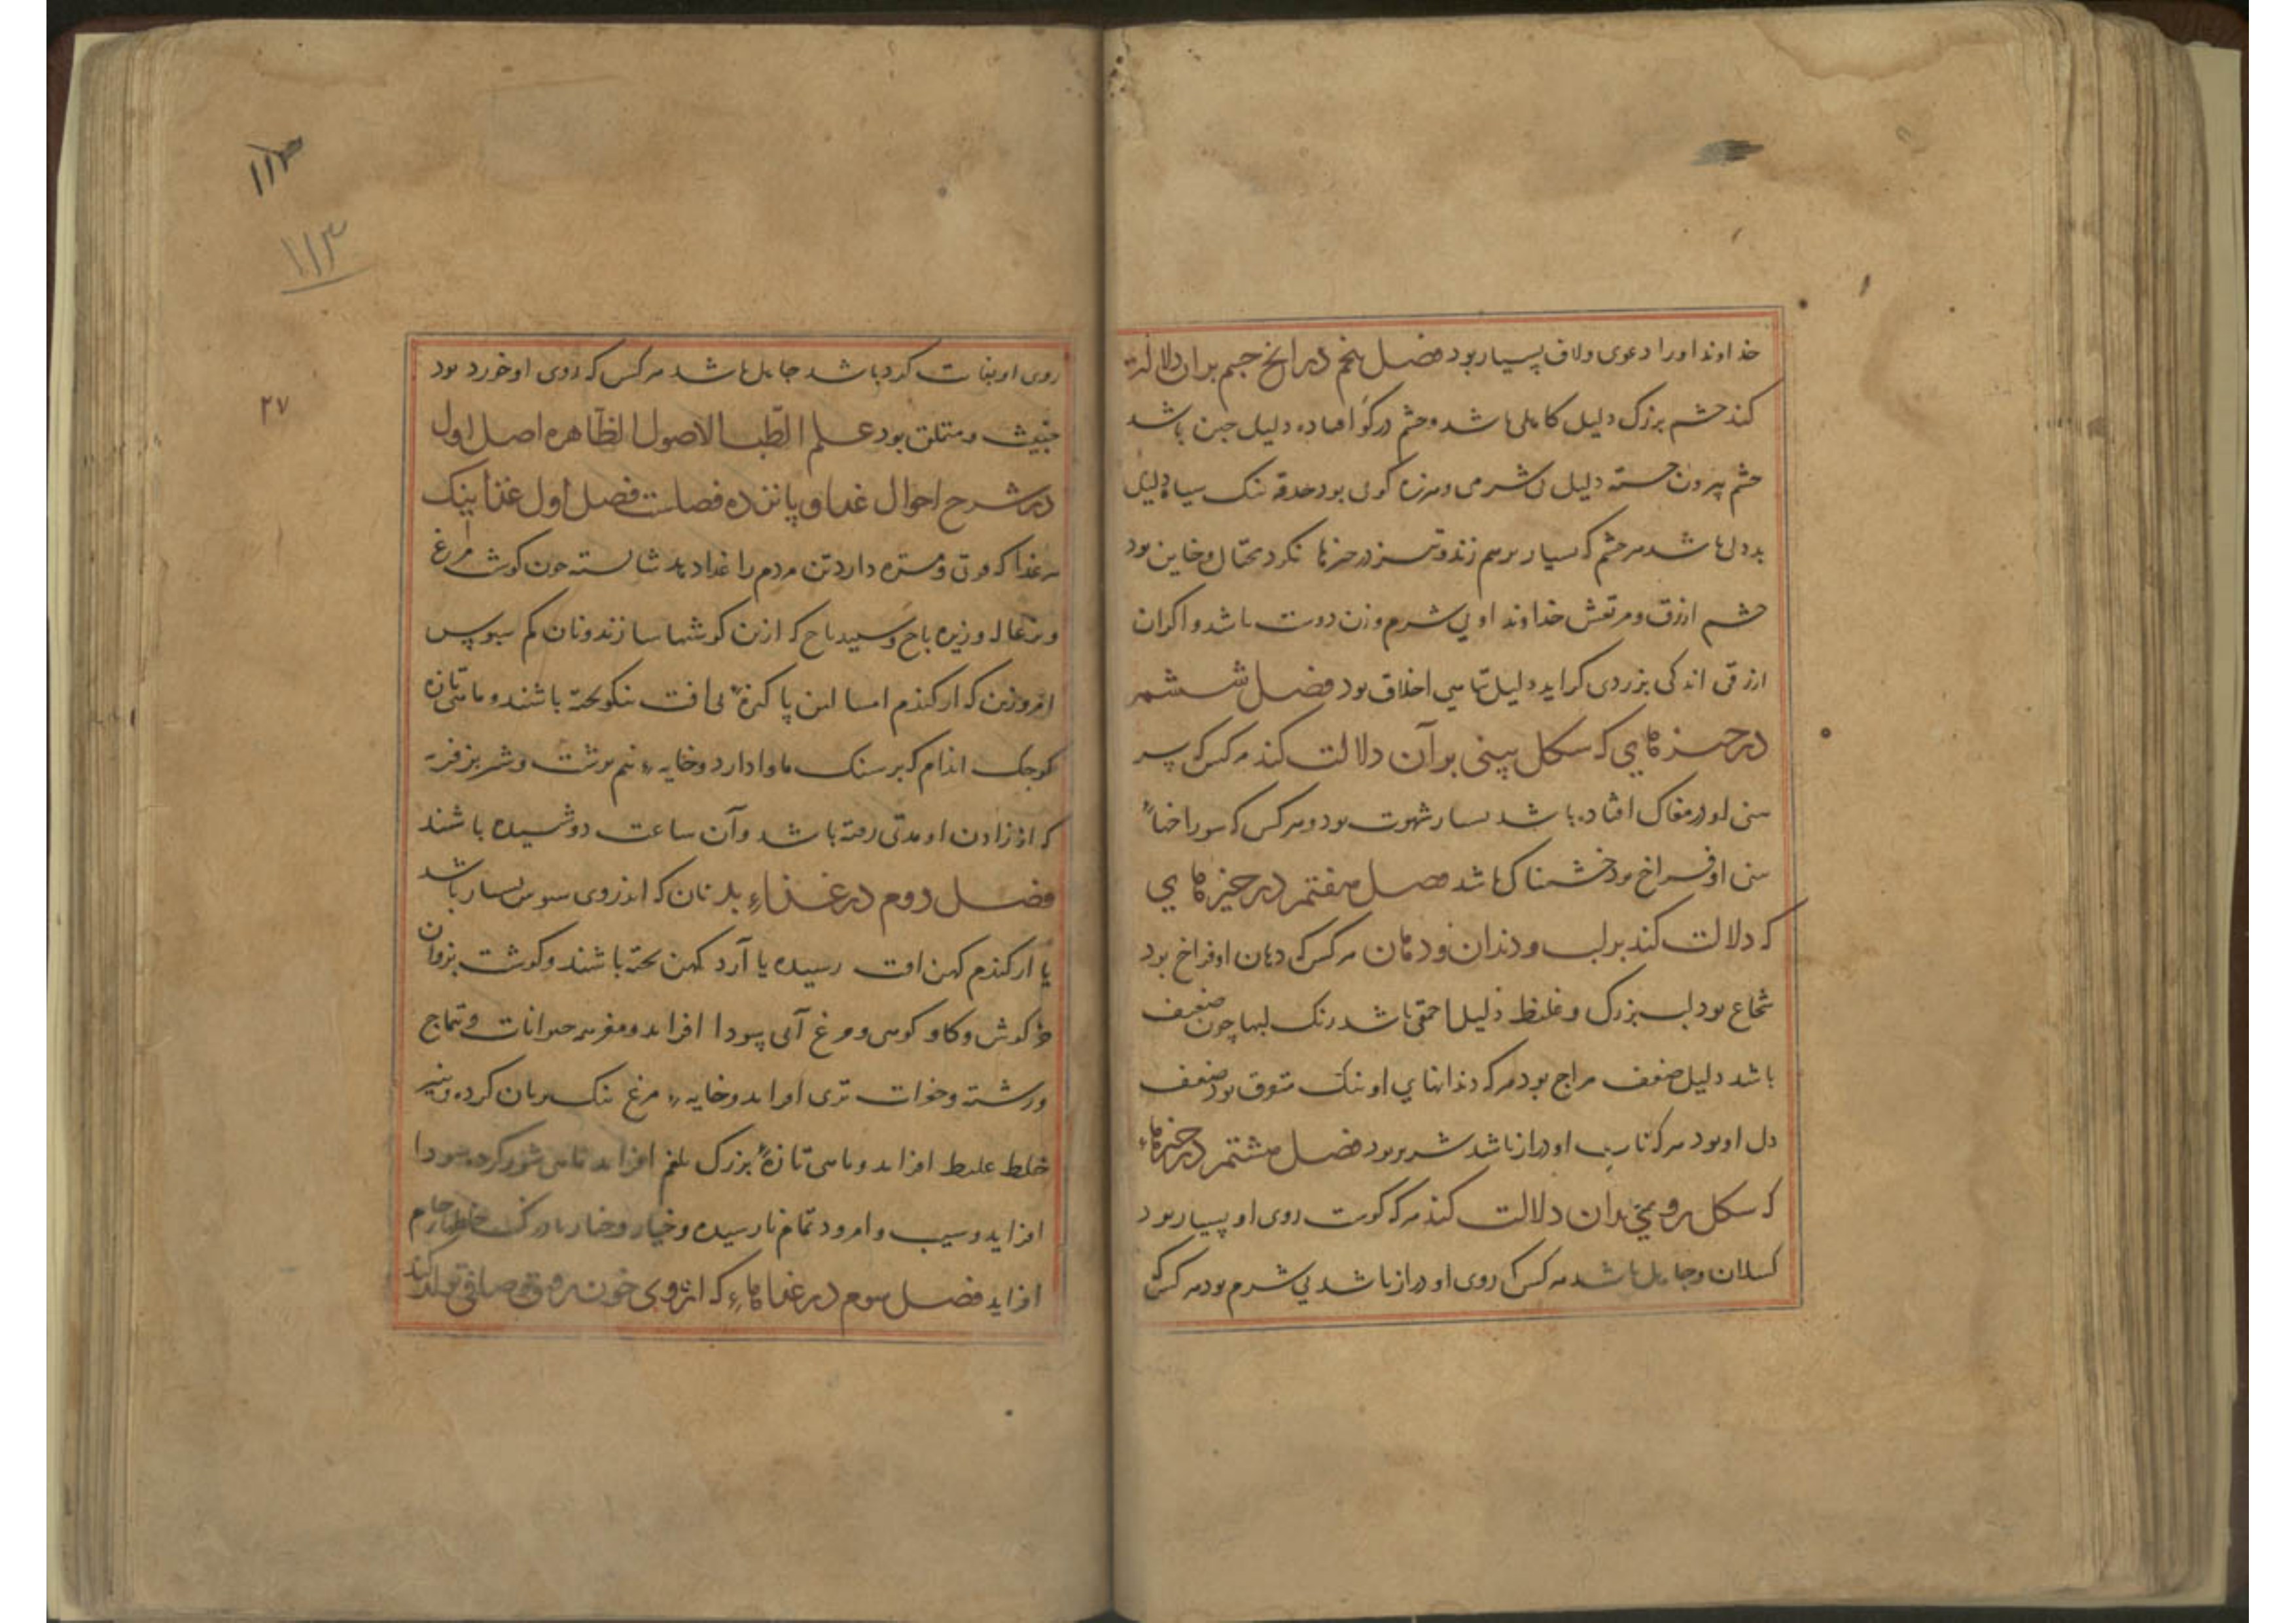 خداوند او را دعوی و لاف بسیار بود فصل پنجم در آنچ چشم بران دلالت
کند چشم بزرگ دلیل کاهلی باشد و چشم در گو افتاده دلیل جبن باشد
چشم بیرون جسته دلیل بی شرمی و هرزه گویی بود حدقه تنک سیاه دلیل
بد دلی باشد هر چشم که بسیار برهم زند و تیز در چیزها نگرد محتال و خاین بود
چشم ازرق و مرتعش خداوند او بی شرم و زن دوست باشد و اگر آن
ازرقی اندکی بزردی گراید دلیل تباهی اخلاق بود فصل ششم
در چیزهایی که شکل بینی بر آن دلالت کند هر کس که سر
بینی او در مغاک افتاده باشد بسیار شهوت بود و هر کس که سوراخهاء
بینی او فراخ بود خشمناک باشد فصل هفتم در چیزهایی
که دلالت کند بر لب و دندان و دهان هر کس که دهان او فراخ بود
شجاع بود لب بزرگ و غلیظ دلیل احمقی باشد رنک لبها چون ضعیف
باشد دلیل ضعف مزاج بود هر که دندانهای او تنک متفرق بود ضعف
دل او بود هر که ناب او دراز باشد شریر بود فصل هشتم در چیزهاء
که شکل روی بدان دلالت کند هر که گوشت روی او بسیار بود
کسلان و جاهل باشد هر کس که روی او دراز باشد بی شرم بود هر کس که
۱۱۳
۱۱۳
۲۷
روی او بغایت گرد باشد جاهل باشد هر کس که روی او خورد بود
خبیث و متملق بود علم الطب الاصول الظاهره اصل اول
در شرح احوال غذا و پانزده فصل است فصل اول غذا نیک
هر غذا که قوتی و مزه دارد تن مردم را غذا دهد شایسته چون گوشت مرغ
و بزغاله و زیره باج و سپیدباج که ازین گوشها سازند و نان کم سبوس
که از گندم پاکیزهٔ بی آفت نیکو پخته باشند و ماهی تازه
کوچک اندام که بر سنک ماوا دارد و خایهٔ نیم برشت و شیر بز فربه
که از زادن او مدتی رفته باشد و آن ساعت دوشیده باشند
فصل دوم در غذاء بد نان که اندروی سبوس بسیار باشد
یا از گندم کهن آفت رسیده یا آرد کهن پخته باشند و گوشت بز و آن
خرگوش و گاو و مرغ آبی سودا افزاید و مغز سر حیوانات و تتماج
و رشته تری افزاید و خایهٔ مرغ نیک بریان کرده و پنیر
خلط غلیظ افزاید و ماهی تازهٔ بزرگ بلغم افزاید ماهی شور کرده سودا
افزاید و سیب و امرود تمام نارسیده و خیار و خیار بادرنک خلط خام
افزاید فصل سوم در غذاهاء که ازوی خون روق صافی تولد کند